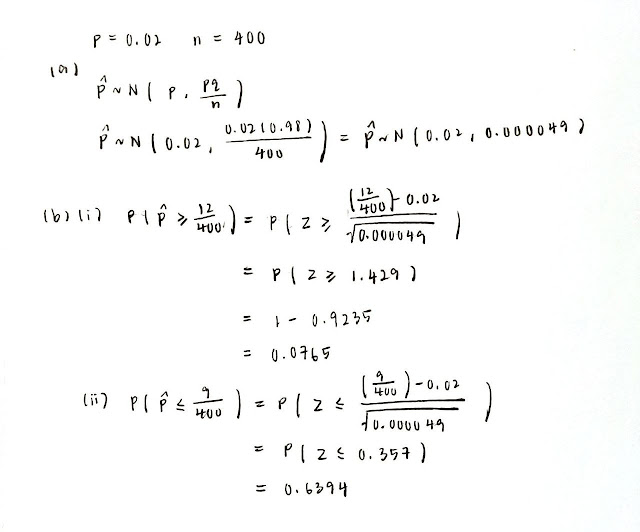 p = 0.02   n = 400
(a)
p̂ ~ N ( p, pq/n )
p̂ ~ N ( 0.02, 0.02(0.98)/400 ) = p̂ ~ N ( 0.02, 0.000049 )
(b) (i) P ( p̂ ≥ 12/400 ) = P ( Z ≥ ((12/400) - 0.02)/√0.000049 )
= P ( Z ≥ 1.429 )
= 1 - 0.9235
= 0.0765
(ii) P ( p̂ ≤ 9/400 ) = P ( Z ≤ ((9/400) - 0.02)/√0.000049 )
= P ( Z ≤ 0.357 )
= 0.6394